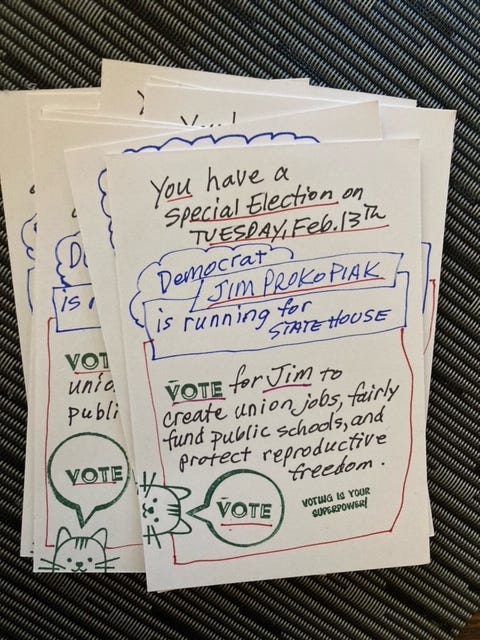 You have a
Special Election on
TUESDAY, Feb. 13Th
Democrat
JIM PROKOPIAK
is running for
STATE HOUSE
VOTE for Jim to
create union jobs, fairly
fund public schools, and
protect reproductive
freedom.
VOTE
VOTING IS YOUR
SUPERPOWER!
You
is
VOT
unio
publi
VOTE